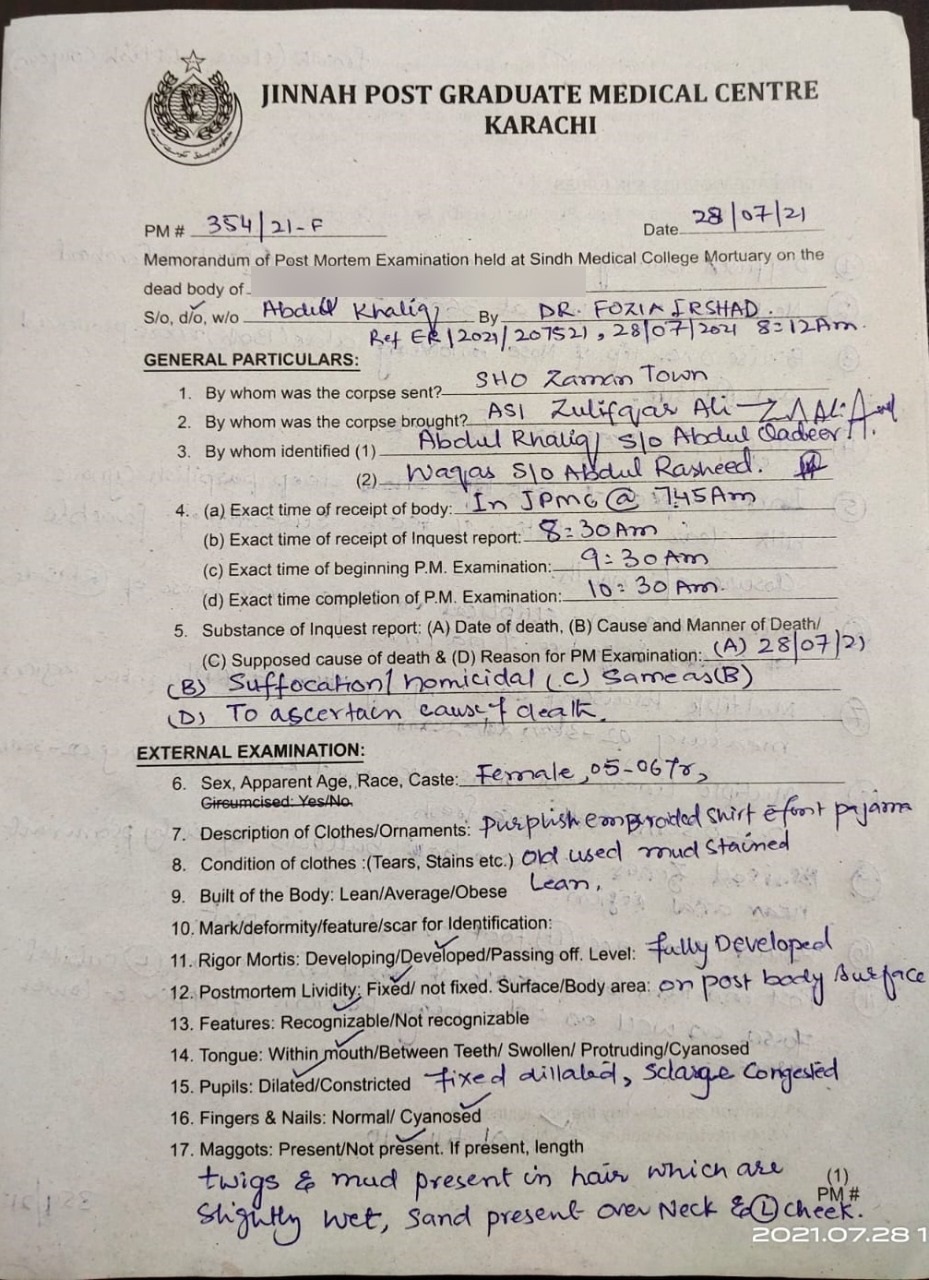 JINNAH POST GRADUATE MEDICAL CENTRE
KARACHI
PM # 354/21-F
Date 28/07/21
Memorandum of Post Mortem Examination held at Sindh Medical College Mortuary on the
dead body of
S/o, d/o, w/o Abdul Khaliq By DR. FOZIA IRSHAD.
Ref ER/2021/207521, 28/07/2021 8:12Am.
GENERAL PARTICULARS:
1. By whom was the corpse sent? SHO Zaman Town
2. By whom was the corpse brought? ASI Zulifqar Ali
3. By whom identified (1) Abdul Khaliq S/o Abdul Qadeer
(2) Waqas S/o Abdul Rasheed.
4. (a) Exact time of receipt of body: In JPMC @ 7:45Am
(b) Exact time of receipt of Inquest report: 8:30Am
(c) Exact time of beginning P.M. Examination: 9:30Am
(d) Exact time completion of P.M. Examination: 10:30 Am.
5. Substance of Inquest report: (A) Date of death, (B) Cause and Manner of Death/
(C) Supposed cause of death & (D) Reason for PM Examination: (A) 28/07/21
(B) Suffocation/ homicidal (C) Same as (B)
(D) To ascertain cause of death.
EXTERNAL EXAMINATION:
6. Sex, Apparent Age, Race, Caste: Female, 05-06Yr,
Circumcised: Yes/No.
7. Description of Clothes/Ornaments: purplish shirt pajama
8. Condition of clothes :(Tears, Stains etc.) Old used mud stained
9. Built of the Body: Lean/Average/Obese Lean,
10. Mark/deformity/feature/scar for Identification:
11. Rigor Mortis: Developing/Developed/Passing off. Level: fully Developed
12. Postmortem Lividity: Fixed/ not fixed. Surface/Body area: on post body surface
13. Features: Recognizable/Not recognizable
14. Tongue: Within mouth/Between Teeth/ Swollen/ Protruding/Cyanosed
15. Pupils: Dilated/Constricted fixed dillated, Congested
16. Fingers & Nails: Normal/ Cyanosed
17. Maggots: Present/Not present. If present, length
twigs & mud present in hair which are
slightly wet, sand present over Neck & (L) cheek.
(1)
PM #
2021.07.28 1